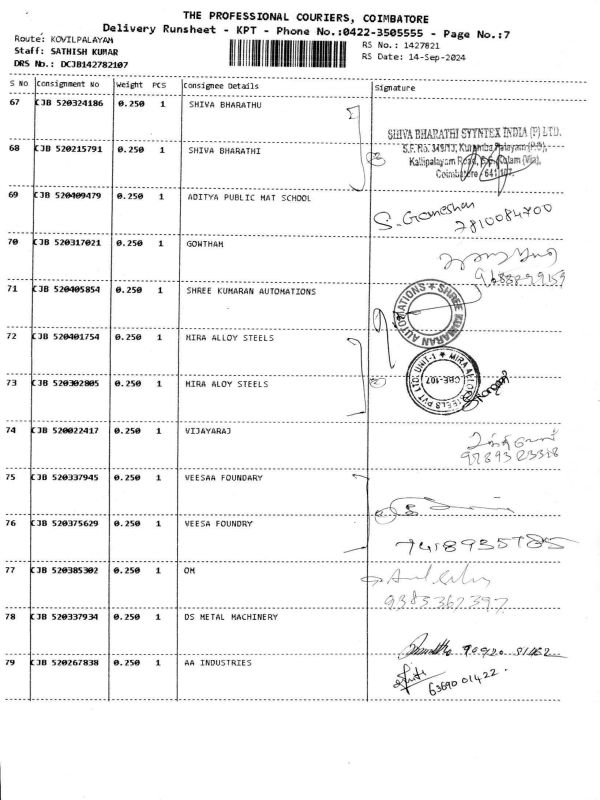 THE PROFESSIONAL COURIERS, COIMBATORE
Delivery Runsheet - KPT - Phone No.:0422-3505555 - Page No.:7
Route: KOVILPALAYAM
RS No.: 1427821
Staff: SATHISH KUMAR
RS Date: 14-Sep-2024
DRS No.: DCJB142782107
S NO Consignment No Weight PCS Consignee Details Signature
67 CJB 520324186 0.250 1 SHIVA BHARATHU
SHIVA BHARATHI SYYNTEX INDIA (P) LTD.
68 CJB 520215791 0.250 1 SHIVA BHARATHI
S.F. No. 349/13, Kurumba Palayam (P.O),
Kallipalayam Road, S.S. Kulam (Via),
Coimbatore - 641 107.
69 CJB 520409479 0.250 1 ADITYA PUBLIC MAT SCHOOL
S. Gomeshan
7810084700
70 CJB 520317021 0.250 1 GOWTHAM
71 CJB 520405854 0.250 1 SHREE KUMARAN AUTOMATIONS
SHREE KUMARAN AUTOMATIONS
72 CJB 520401754 0.250 1 MIRA ALLOY STEELS
MIRA ALLOY STEELS PVT LTD. UNIT-1
CBE-107
73 CJB 520302805 0.250 1 MIRA ALOY STEELS
74 CJB 520022417 0.250 1 VIJAYARAJ
9789323318
75 CJB 520337945 0.250 1 VEESAA FOUNDARY
76 CJB 520375629 0.250 1 VEESA FOUNDRY
7418935785
77 CJB 520385302 0.250 1 OM
9385367397
78 CJB 520337934 0.250 1 DS METAL MACHINERY
79 CJB 520267838 0.250 1 AA INDUSTRIES
63690 01422.